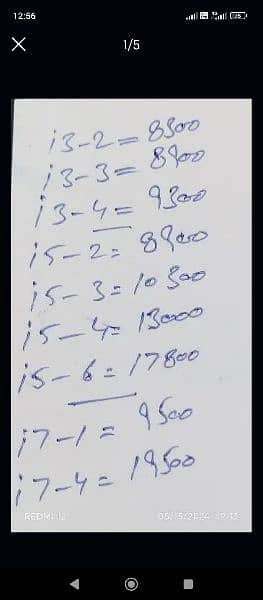 12:56
1/5
i3-2=8300
i3-3=8900
i3-4=9300
i5-2=8900
i5-3=10300
i5-4=13000
i5-6=17800
i7-1=9500
i7-4=19500
REDMI